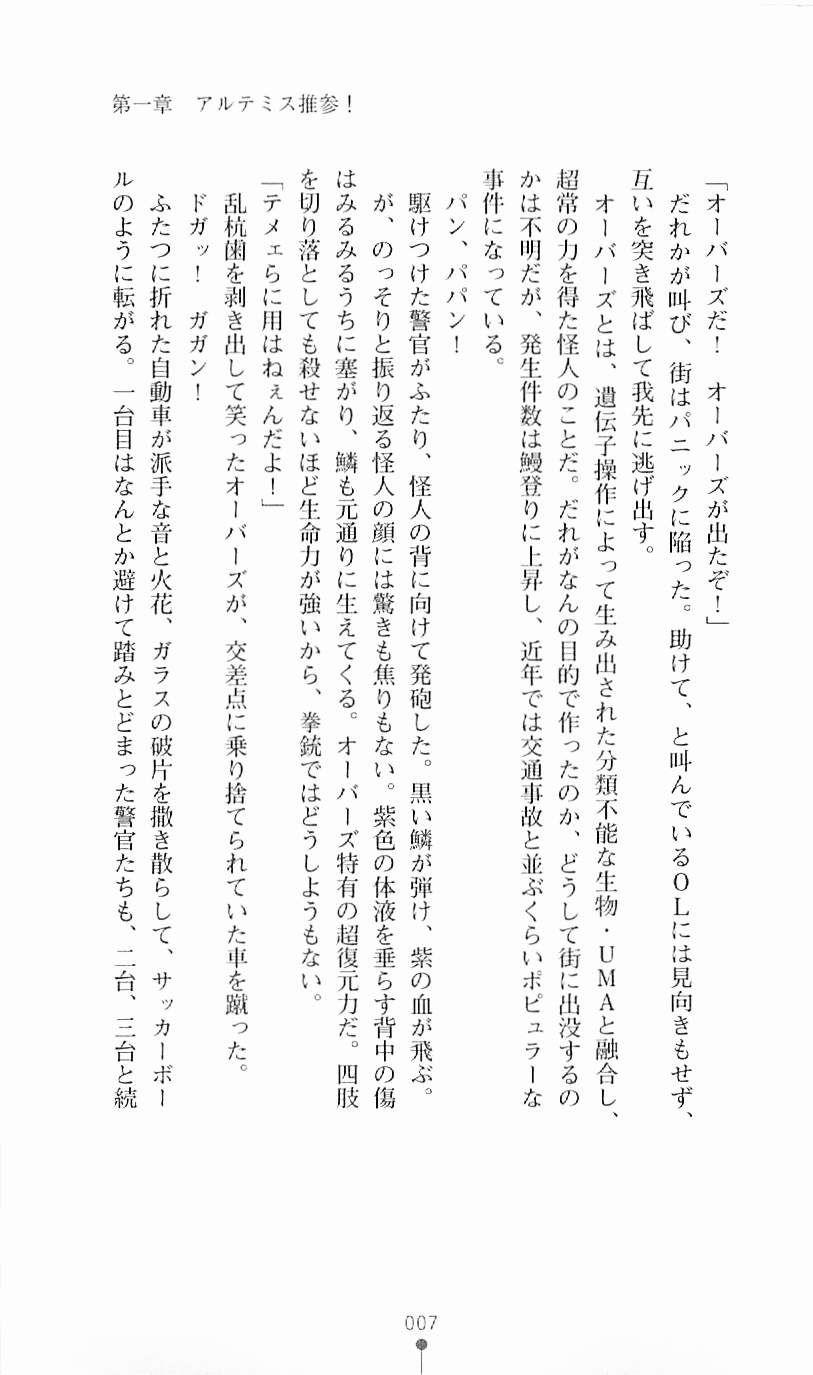 第一章　アルテミス推参！
「オーバーズだ！　オーバーズが出たぞ！」
　だれかが叫び、街はパニックに陥った。助けて、と叫んでいるＯＬには見向きもせず、
互いを突き飛ばして我先に逃げ出す。
　オーバーズとは、遺伝子操作によって生み出された分類不能な生物・ＵＭＡと融合し、
超常の力を得た怪人のことだ。だれがなんの目的で作ったのか、どうして街に出没するの
かは不明だが、発生件数は鰻登りに上昇し、近年では交通事故と並ぶくらいポピュラーな
事件になっている。
　パン、パパン！
　駆けつけた警官がふたり、怪人の背に向けて発砲した。黒い鱗が弾け、紫の血が飛ぶ。
　が、のっそりと振り返る怪人の顔には驚きも焦りもない。紫色の体液を垂らす背中の傷
はみるみるうちに塞がり、鱗も元通りに生えてくる。オーバーズ特有の超復元力だ。四肢
を切り落としても殺せないほど生命力が強いから、拳銃ではどうしようもない。
「テメェらに用はねぇんだよ！」
　乱杭歯を剥き出して笑ったオーバーズが、交差点に乗り捨てられていた車を蹴った。
　ドガッ！　ガガン！
　ふたつに折れた自動車が派手な音と火花、ガラスの破片を撒き散らして、サッカーボー
ルのように転がる。一台目はなんとか避けて踏みとどまった警官たちも、二台、三台と続
007